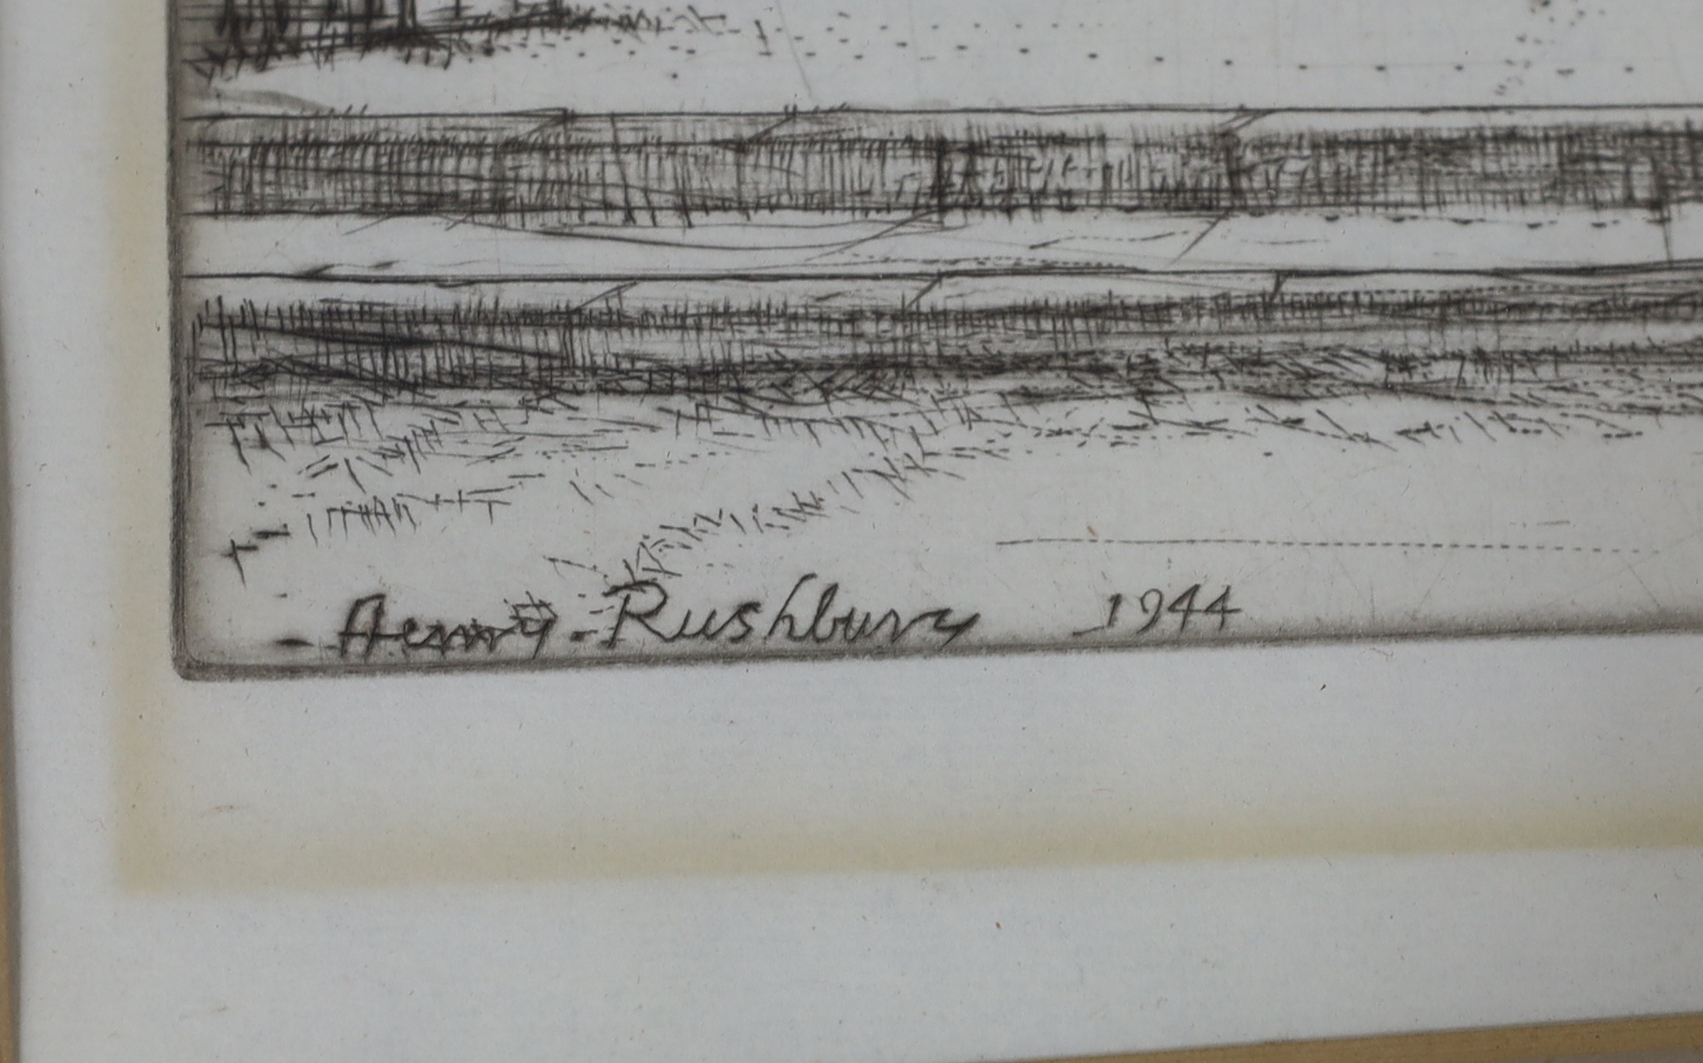 Henry Rushbury 1944